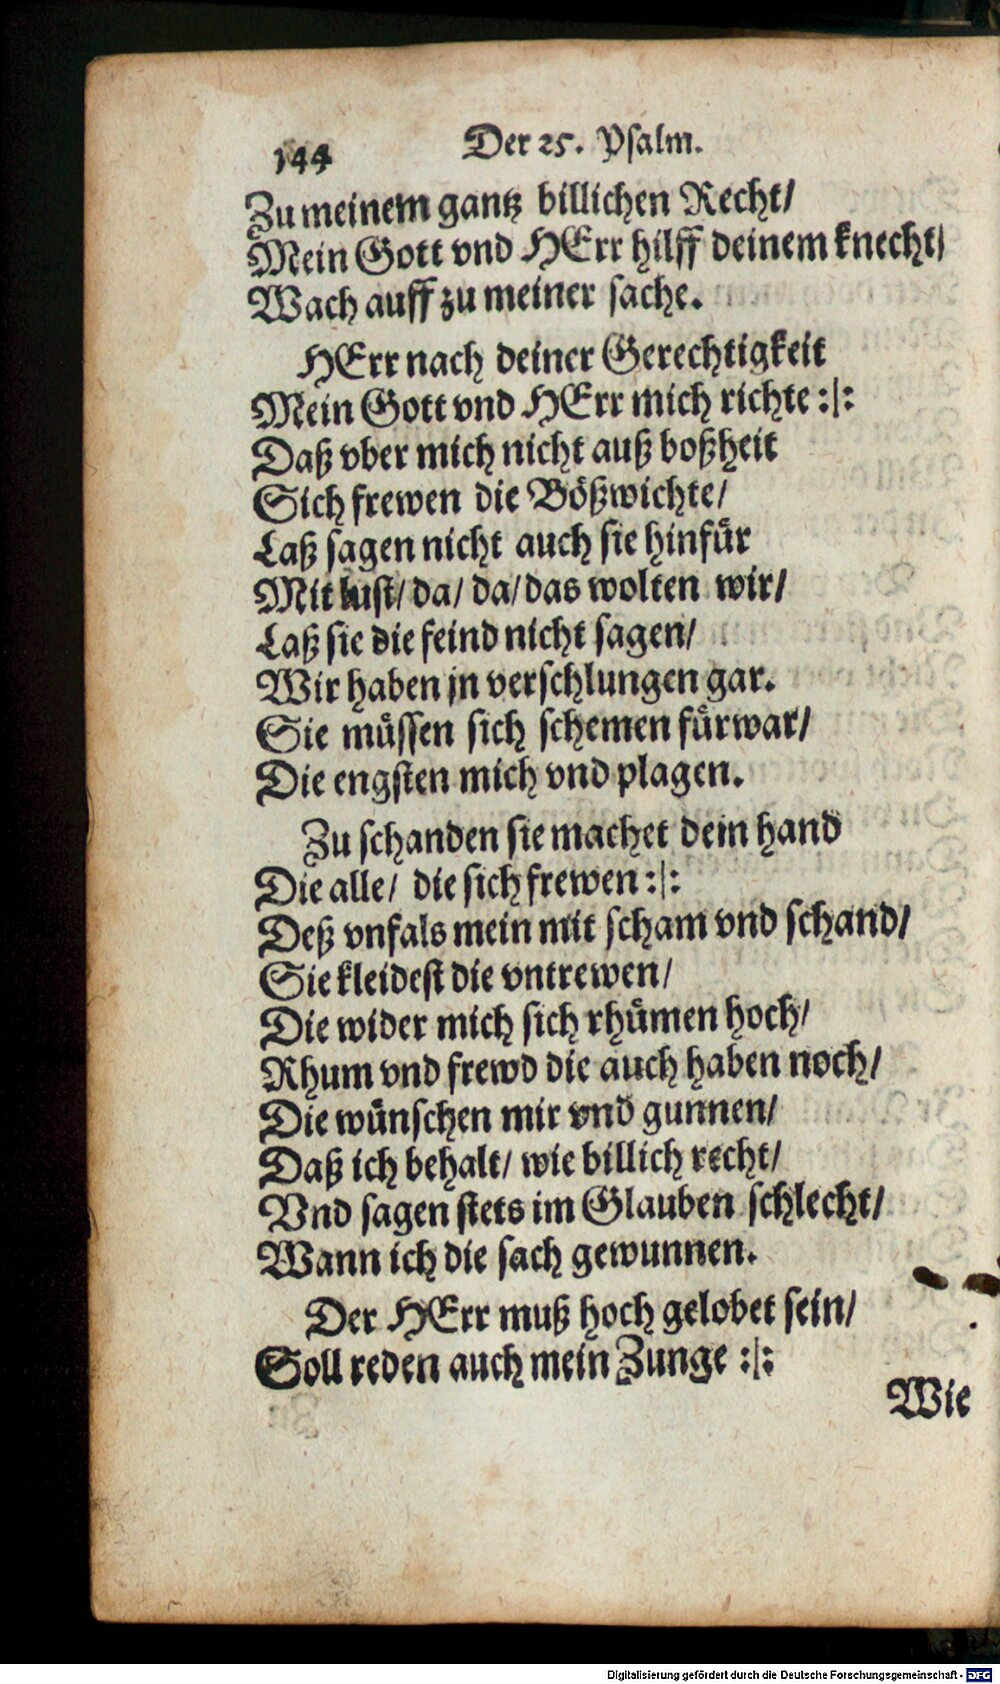 144 Der 25. Psalm.
Zu meinem gantz billichen Recht/
Mein Gott vnd HErr hilff deinem knecht/
Wach auff zu meiner sache.
HErr nach deiner Gerechtigkeit
Mein Gott vnd HErr mich richte :|:
Daß vber mich nicht auß boßheit
Sich frewen die Bößwichte/
Laß sagen nicht auch sie hinfür
Mit lust/ da/ da/ das wolten wir/
Laß sie die feind nicht sagen/
Wir haben jn verschlungen gar.
Sie müssen sich schemen fürwar/
Die engsten mich vnd plagen.
Zu schanden sie machet dein hand
Die alle/ die sich frewen :|:
Deß vnfals mein mit scham vnd schand/
Sie kleidest die vntrewen/
Die wider mich sich rhümen hoch/
Rhum vnd frewd die auch haben noch/
Die wünschen mir vnd gunnen/
Daß ich behalt/ wie billich recht/
Vnd sagen stets im Glauben schlecht/
Wann ich die sach gewunnen.
Der HErr muß hoch gelobet sein/
Soll reden auch mein Zunge :|:
Wie
Digitalisierung gefördert durch die Deutsche Forschungsgemeinschaft - DFG